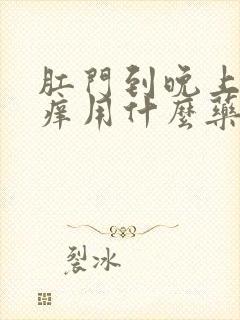 肛門到晚上
痒用什麼藥
裂冰